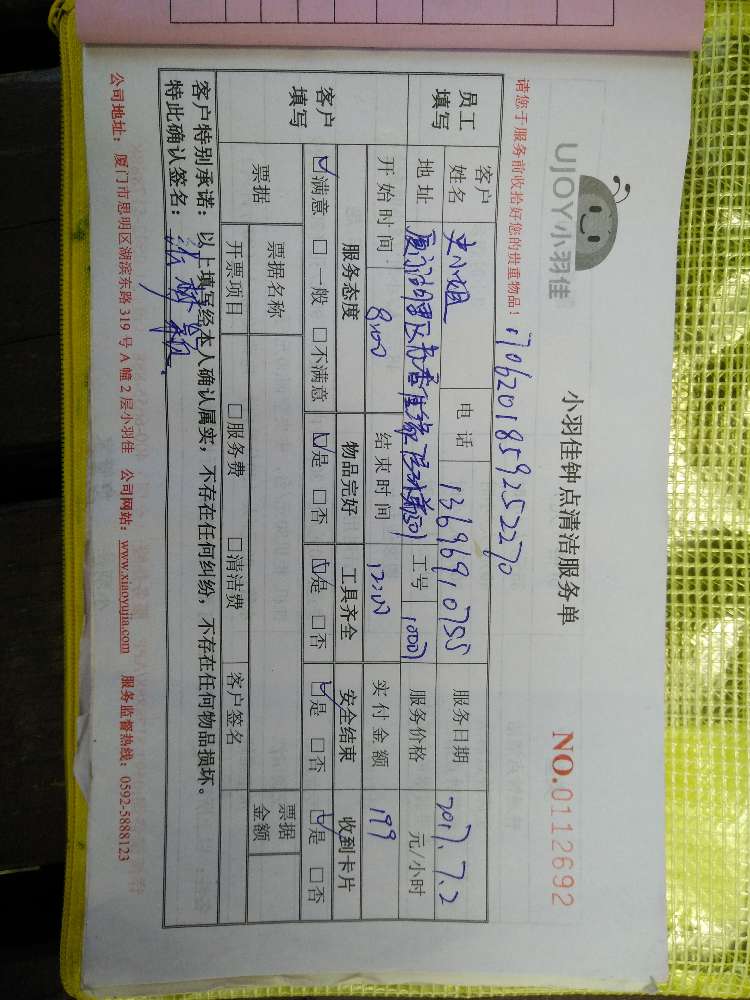 UJOY小羽佳
小羽佳钟点清洁服务单
NO.0112692
请您于服务前收拾好您的贵重物品！
1706201859252270
员工填写 客户姓名 小姐 电话 13696910755 服务日期 2017.7.2
地址 厦门 区 工号 10007 服务价格 元/小时
开始时间 8:00 结束时间 12:00 实付金额 199
客户填写 服务态度 物品完好 工具齐全 安全结束 收到卡片
☑满意 □一般 □不满意 ☑是 □否 ☑是 □否 ☑是 □否 ☑是 □否
票据 票据名称 票据金额
开票项目 □服务费 □清洁费 客户签名
客户特别承诺：以上填写经本人确认属实，不存在任何纠纷，不存在任何物品损坏。
特此确认签名：
公司地址：厦门市思明区湖滨东路 319 号 A 幢 2 层小羽佳 公司网站：www.xiaoyujia.com 服务监督热线：0592-5888123